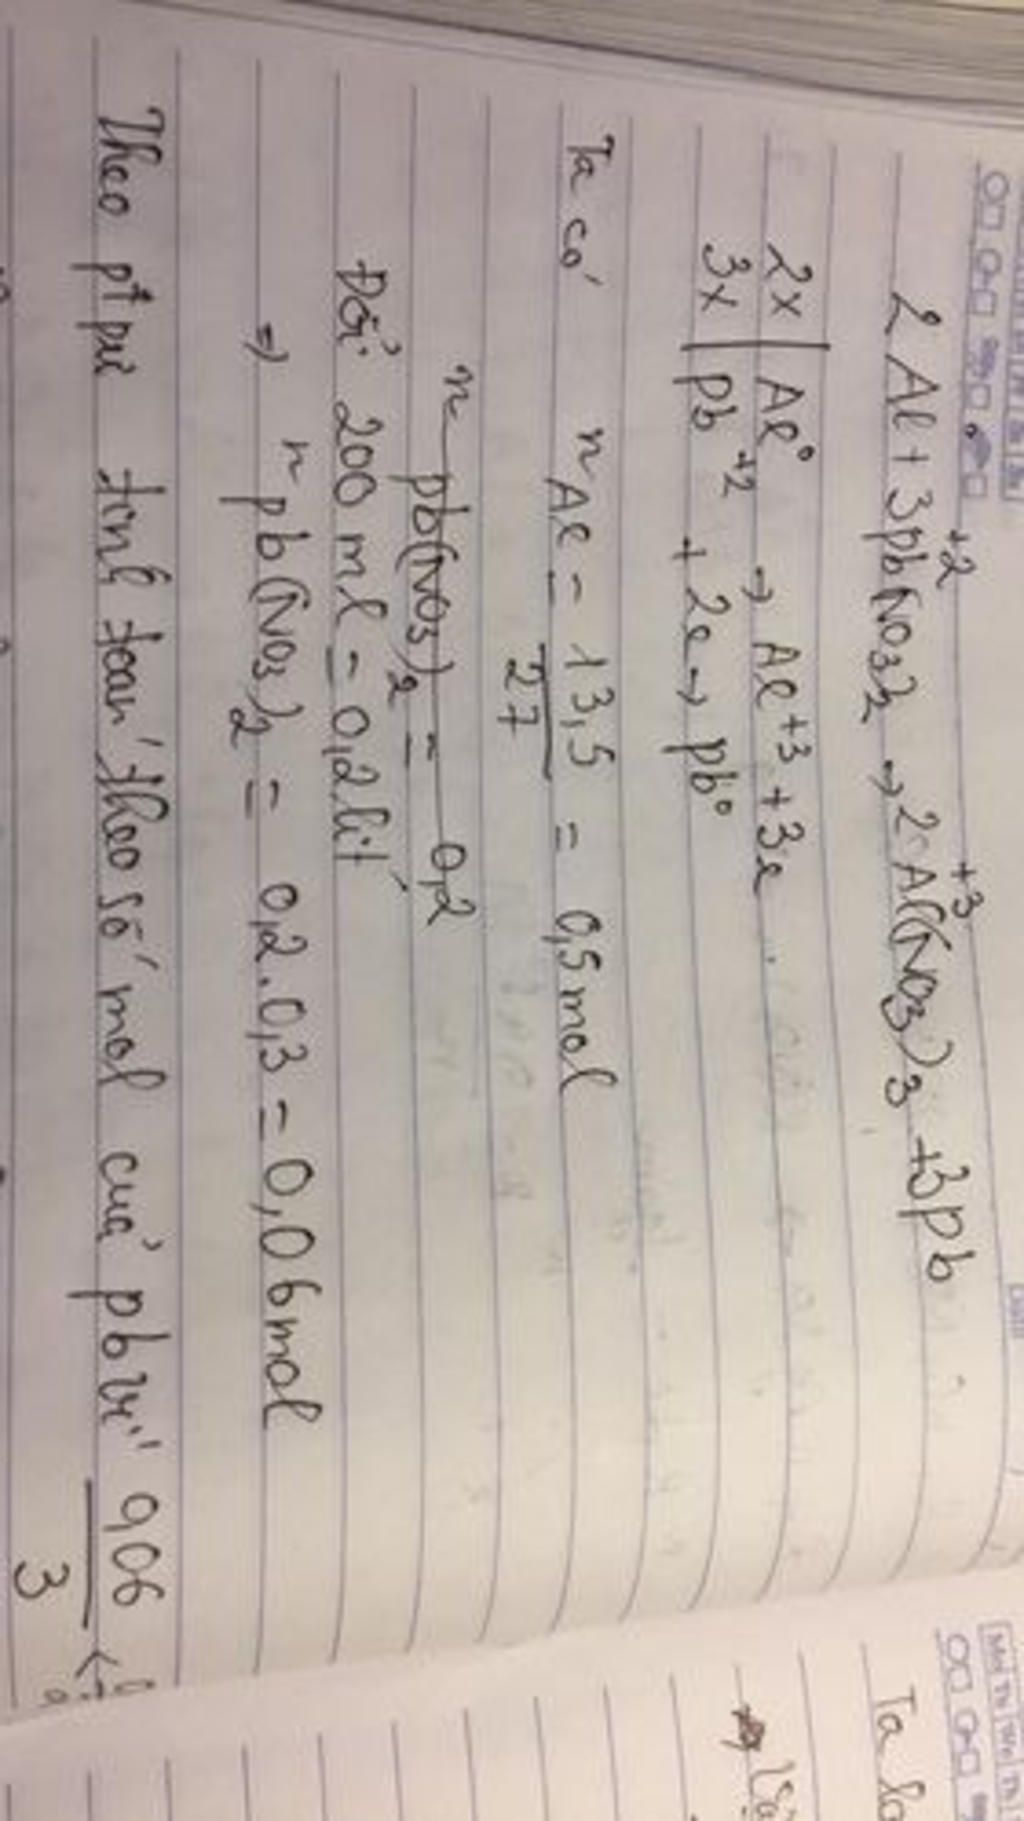 +2 +3
2 Al + 3pb(NO3)2 → 2Al(NO3)3 + 3pb
2x | Al⁰ → Al+3 + 3e
3x | pb+2 + 2e → pb⁰
Ta có n Al = 13,5 / 27 = 0,5 mol
n pb(NO3)2 = 0,2
Đổi 200 ml = 0,2 lít
⇒ n pb(NO3)2 = 0,2.0,3 = 0,06 mol
Theo pt pư tính toán theo số mol của pb vì 0,06 / 3 <
Ta